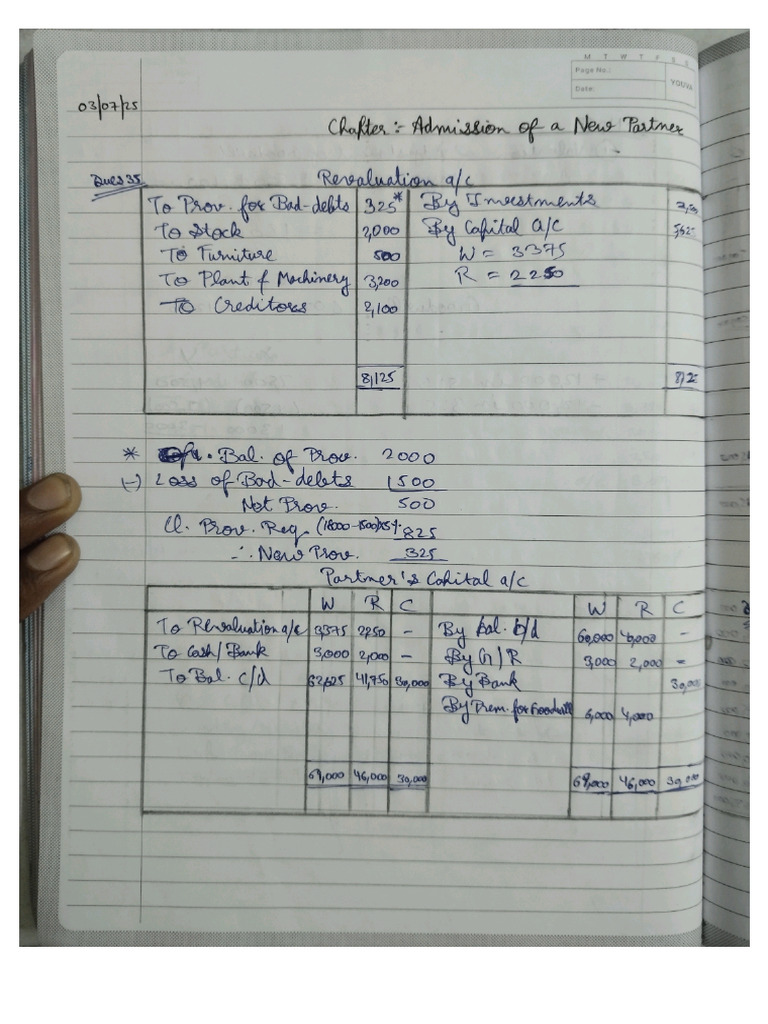 M T W T F S S
Page No.:
Date:
YOUVA
03/07/25
Chapter:- Admission of a New Partner
Ques 35
Revaluation a/c
To Prov. for Bad-debts 325* By Investments
To Stock 2,000 By Capital a/c
To Furniture 500 W = 3375
To Plant & Machinery 3,200 R = 2250
To Creditors 2,100
8,125 8,125
* Bal. of Prov. 2000
(-) Loss of Bad-debts 1500
Net Prov. 500
Cl. Prov. Req. (18000-1500)x5%. 825
∴ New Prov. 325
Partner's Capital a/c
W R C W R C
To Revaluation a/c 3,375 2,250 - By Bal. b/d 60,000 40,000 -
To Cash/Bank 3,000 2,000 - By G/R 3,000 2,000 -
To Bal. c/d 62,625 41,750 30,000 By Bank 30,000
By Prem. for Goodwill 6,000 4,000
69,000 46,000 30,000 69,000 46,000 30,000